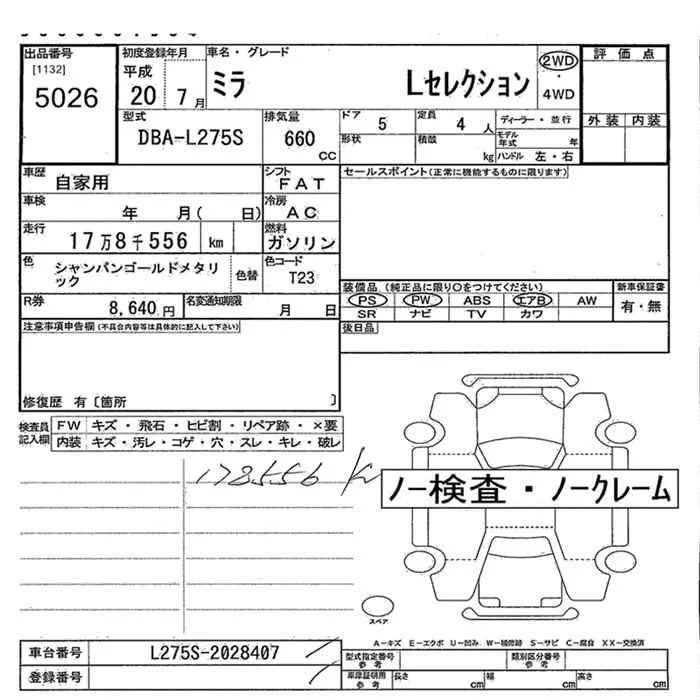 出品番号 初度登録年月 車名・グレード 評価点
[1132] 平成 ミラ Lセレクション 2WD
5026 20 7月 ・4WD
型式 排気量 ドア 定員 ディーラー・並行 外装 内装
DBA-L275S 660 CC 5 4人
形状 積載 kg モデル年式 年
ハンドル 左・右
車歴 自家用 シフト FAT セールスポイント(正常に機能するものに限ります)
車検 年 月( 日) 冷房 AC
走行 17万8千556 km 燃料 ガソリン
色 シャンパンゴールドメタリック 色替 色コード T23
装備品(純正品に限り○をつけてください) 新車保証書
R券 8,640円 名変通知期限 月 日 PS PW ABS エアB AW 有・無
SR ナビ TV カワ
注意事項申告欄(不具合内容等は具体的に記入して下さい) 後日品
修復歴 有〔箇所 〕
検査員記入欄 FW キズ・飛石・ヒビ割・リペア跡・×要
内装 キズ・汚レ・コゲ・穴・スレ・キレ・破レ
178556 km
ノー検査・ノークレーム
スペア
A-キズ E-エクボ U-凹み W-補修跡 S-サビ C-腐食 XX-交換済
車台番号 L275S-2028407 型式指定番号 参考 類別区分番号 参考
登録番号 車庫証明用 参考 長さ cm 幅 cm 高さ cm